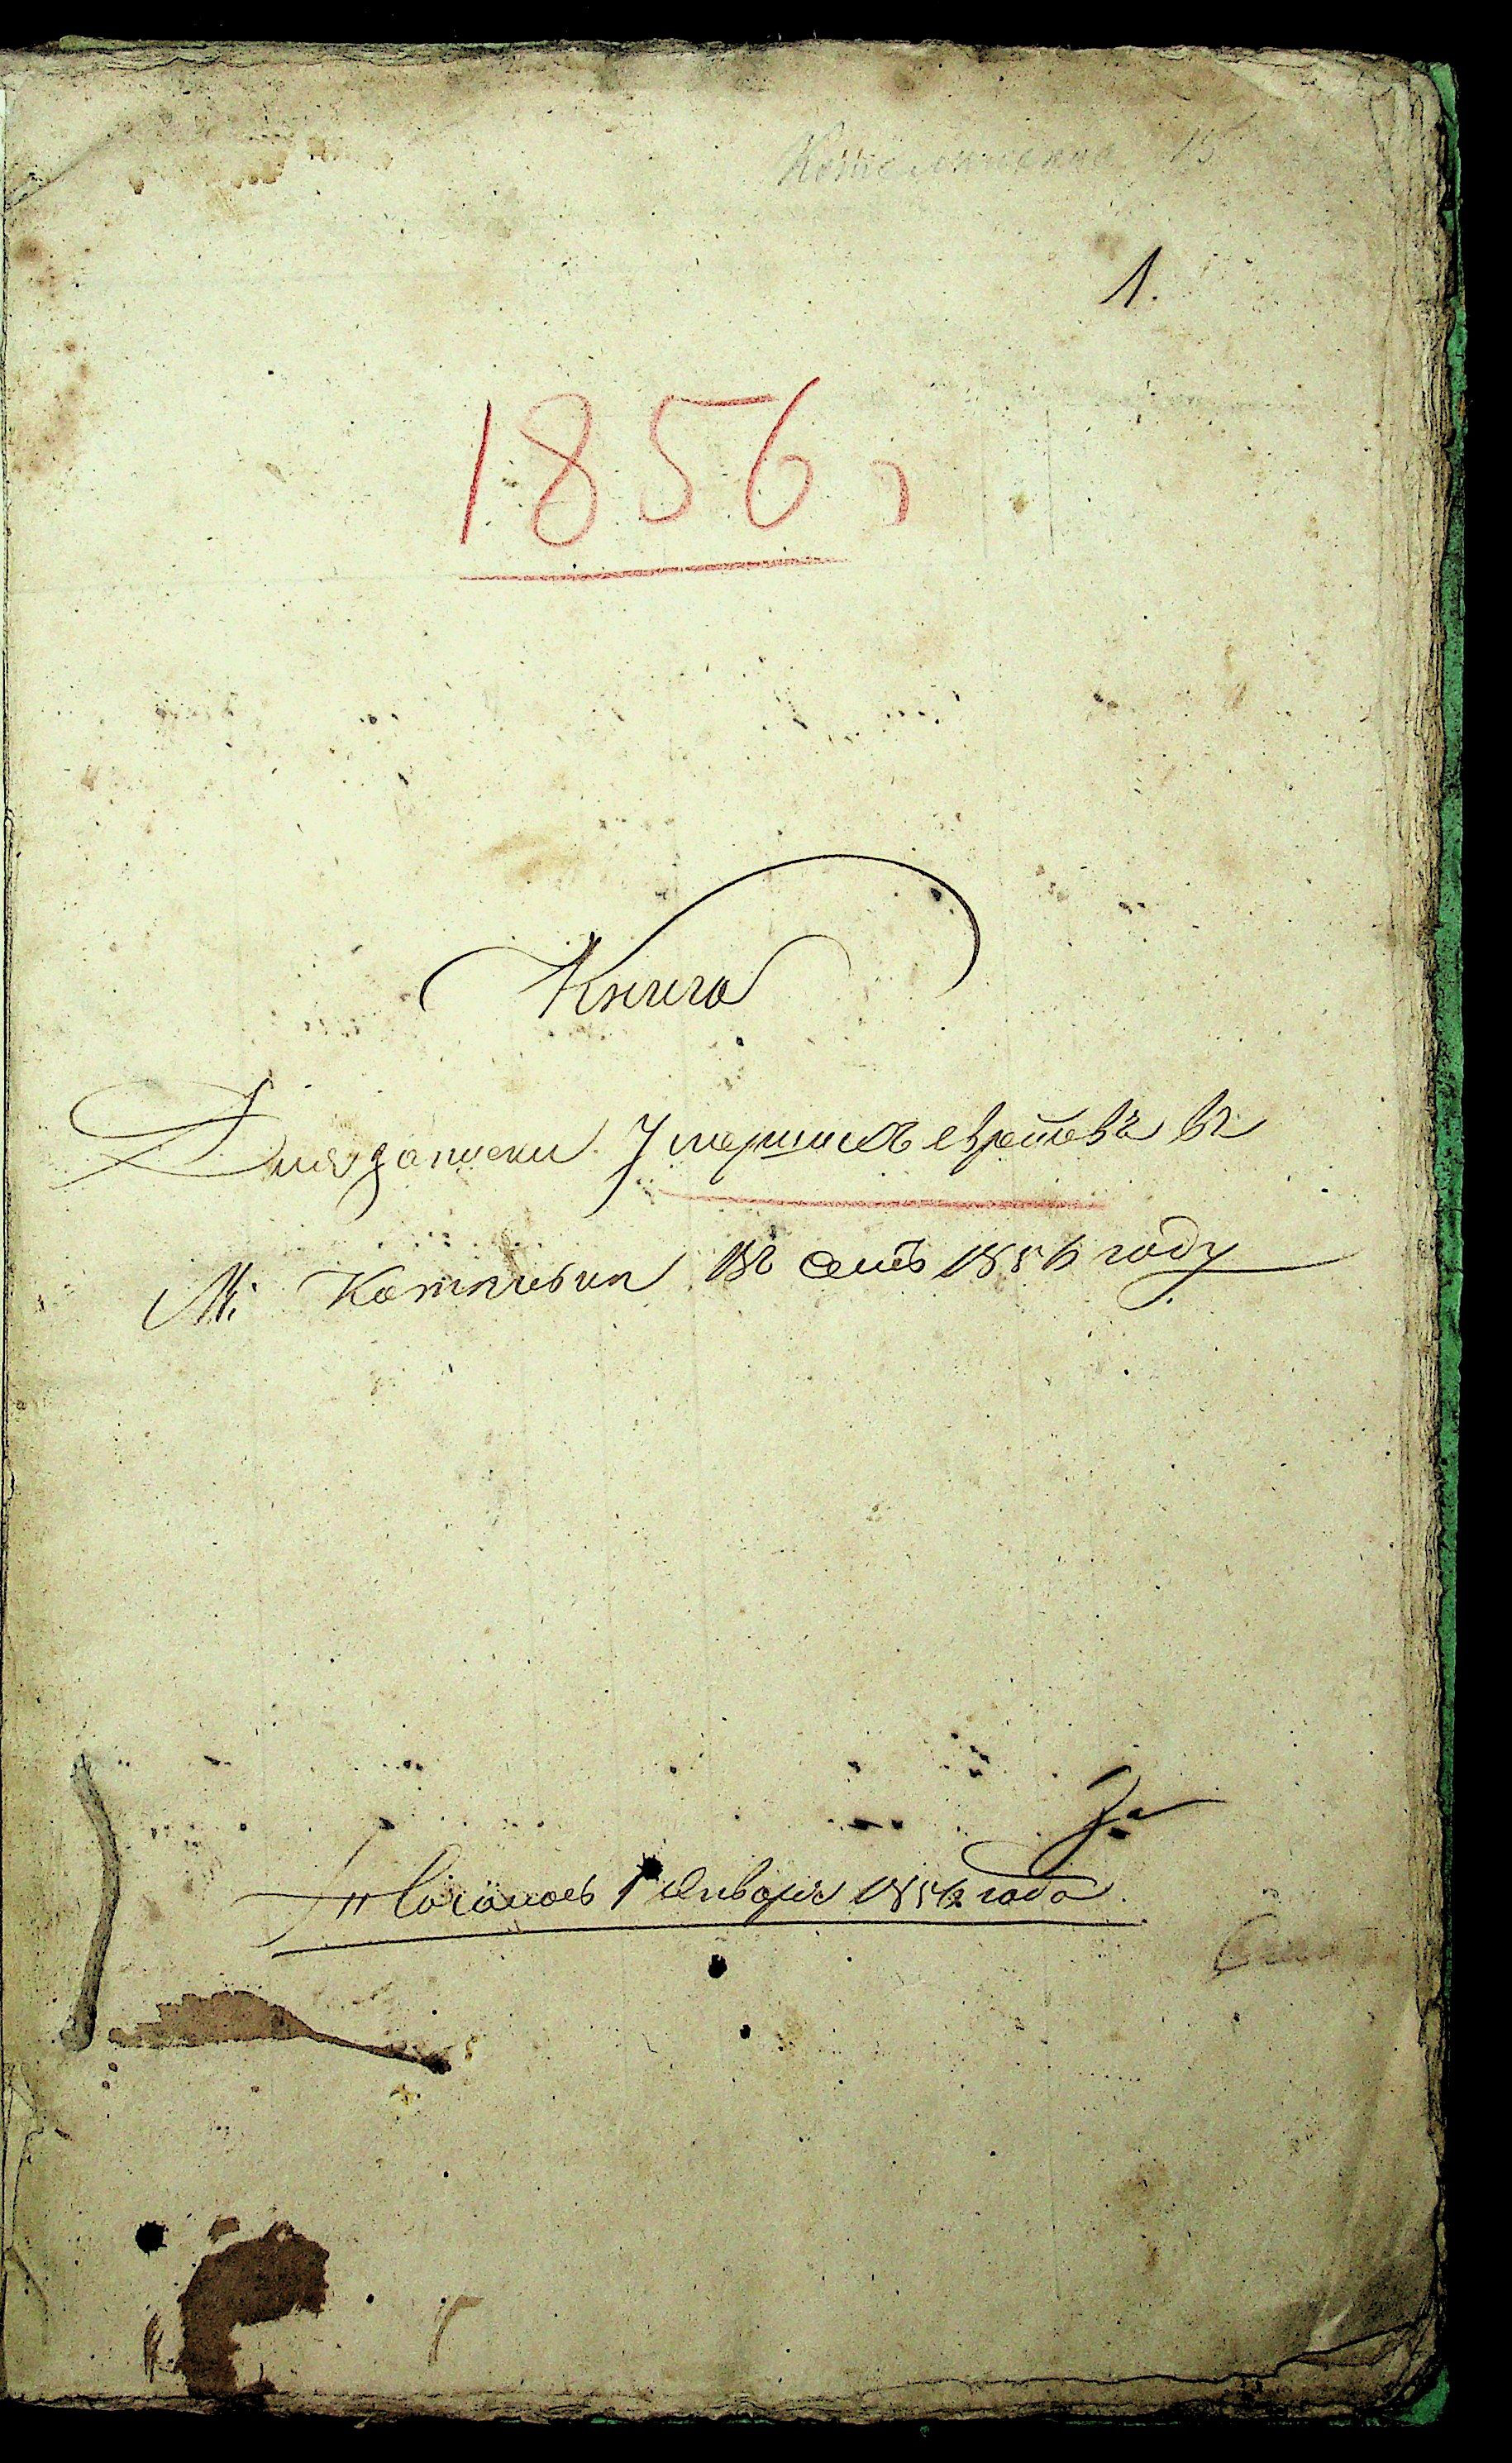 15
1.
1856 г
Книга
Для записки Умершихъ евреевъ въ
М: въ семъ 1856 году
Началось 1 Января 1856 года.